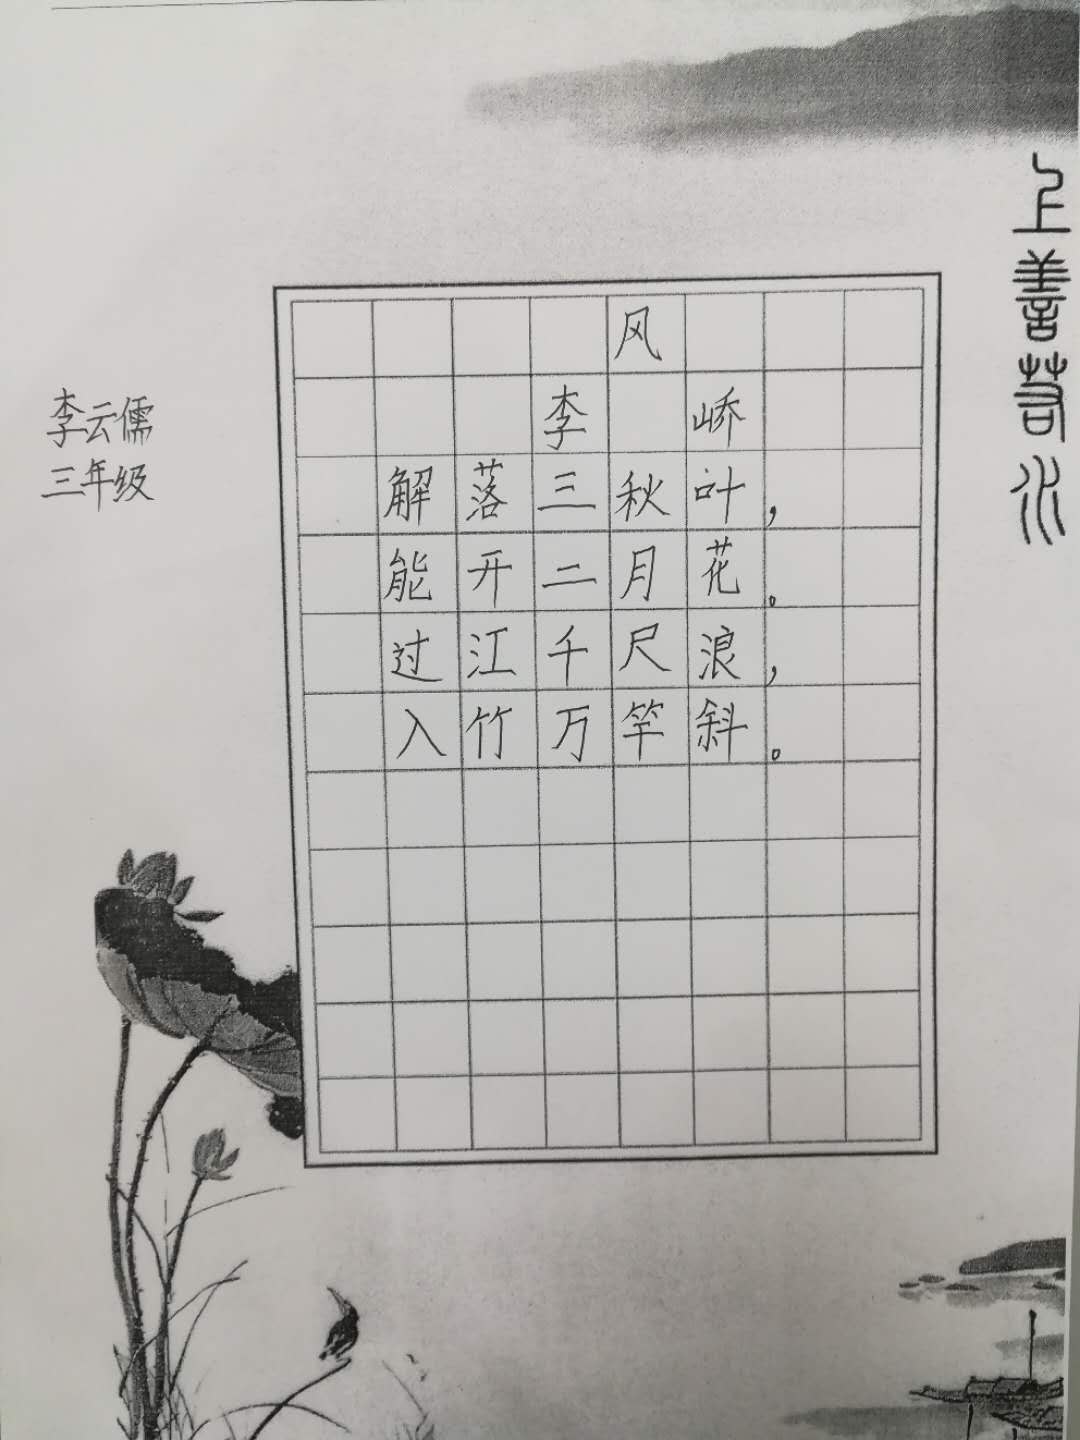 上善若水
风
李 峤
解落三秋叶，
能开二月花。
过江千尺浪，
入竹万竿斜。
李云儒
三年级